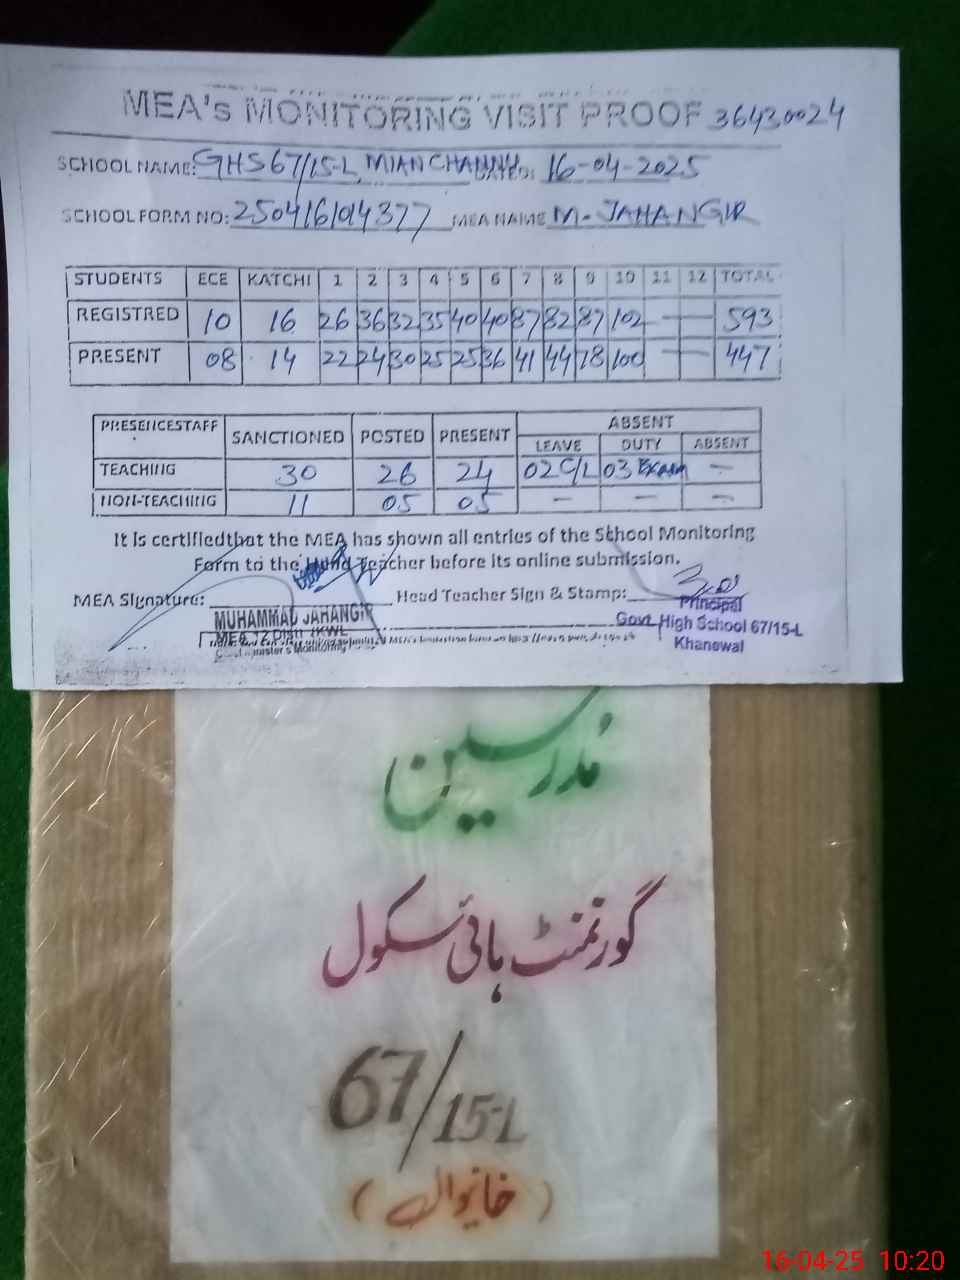 MEA's MONITORING VISIT PROOF 36430024
SCHOOL NAME: GHS 67/15-L MIANCHANNU DATED: 16-04-2025
SCHOOL FORM NO: 250416014377 MEA NAME M. JAHANGIR
STUDENTS ECE KATCHI 1 2 3 4 5 6 7 8 9 10 11 12 TOTAL
REGISTRED 10 16 26 36 32 35 40 40 87 82 87 102 — — 593
PRESENT 08 14 22 24 30 25 25 36 41 44 78 100 — — 447
PRESENCESTAFF SANCTIONED POSTED PRESENT ABSENT
LEAVE DUTY ABSENT
TEACHING 30 26 24 02 C/L 03 Exam —
NON-TEACHING 11 05 05 — — —
It is certifiedthat the MEA has shown all entries of the School Monitoring
Form to the Head Teacher before its online submission.
MEA Signature: Head Teacher Sign & Stamp:
MUHAMMAD JAHANGIR
Principal
Govt. High School 67/15-L
Khanewal
مدرسین
گورنمنٹ ہائی سکول
67/15-L
(خانیوال)
16-04-25 10:20